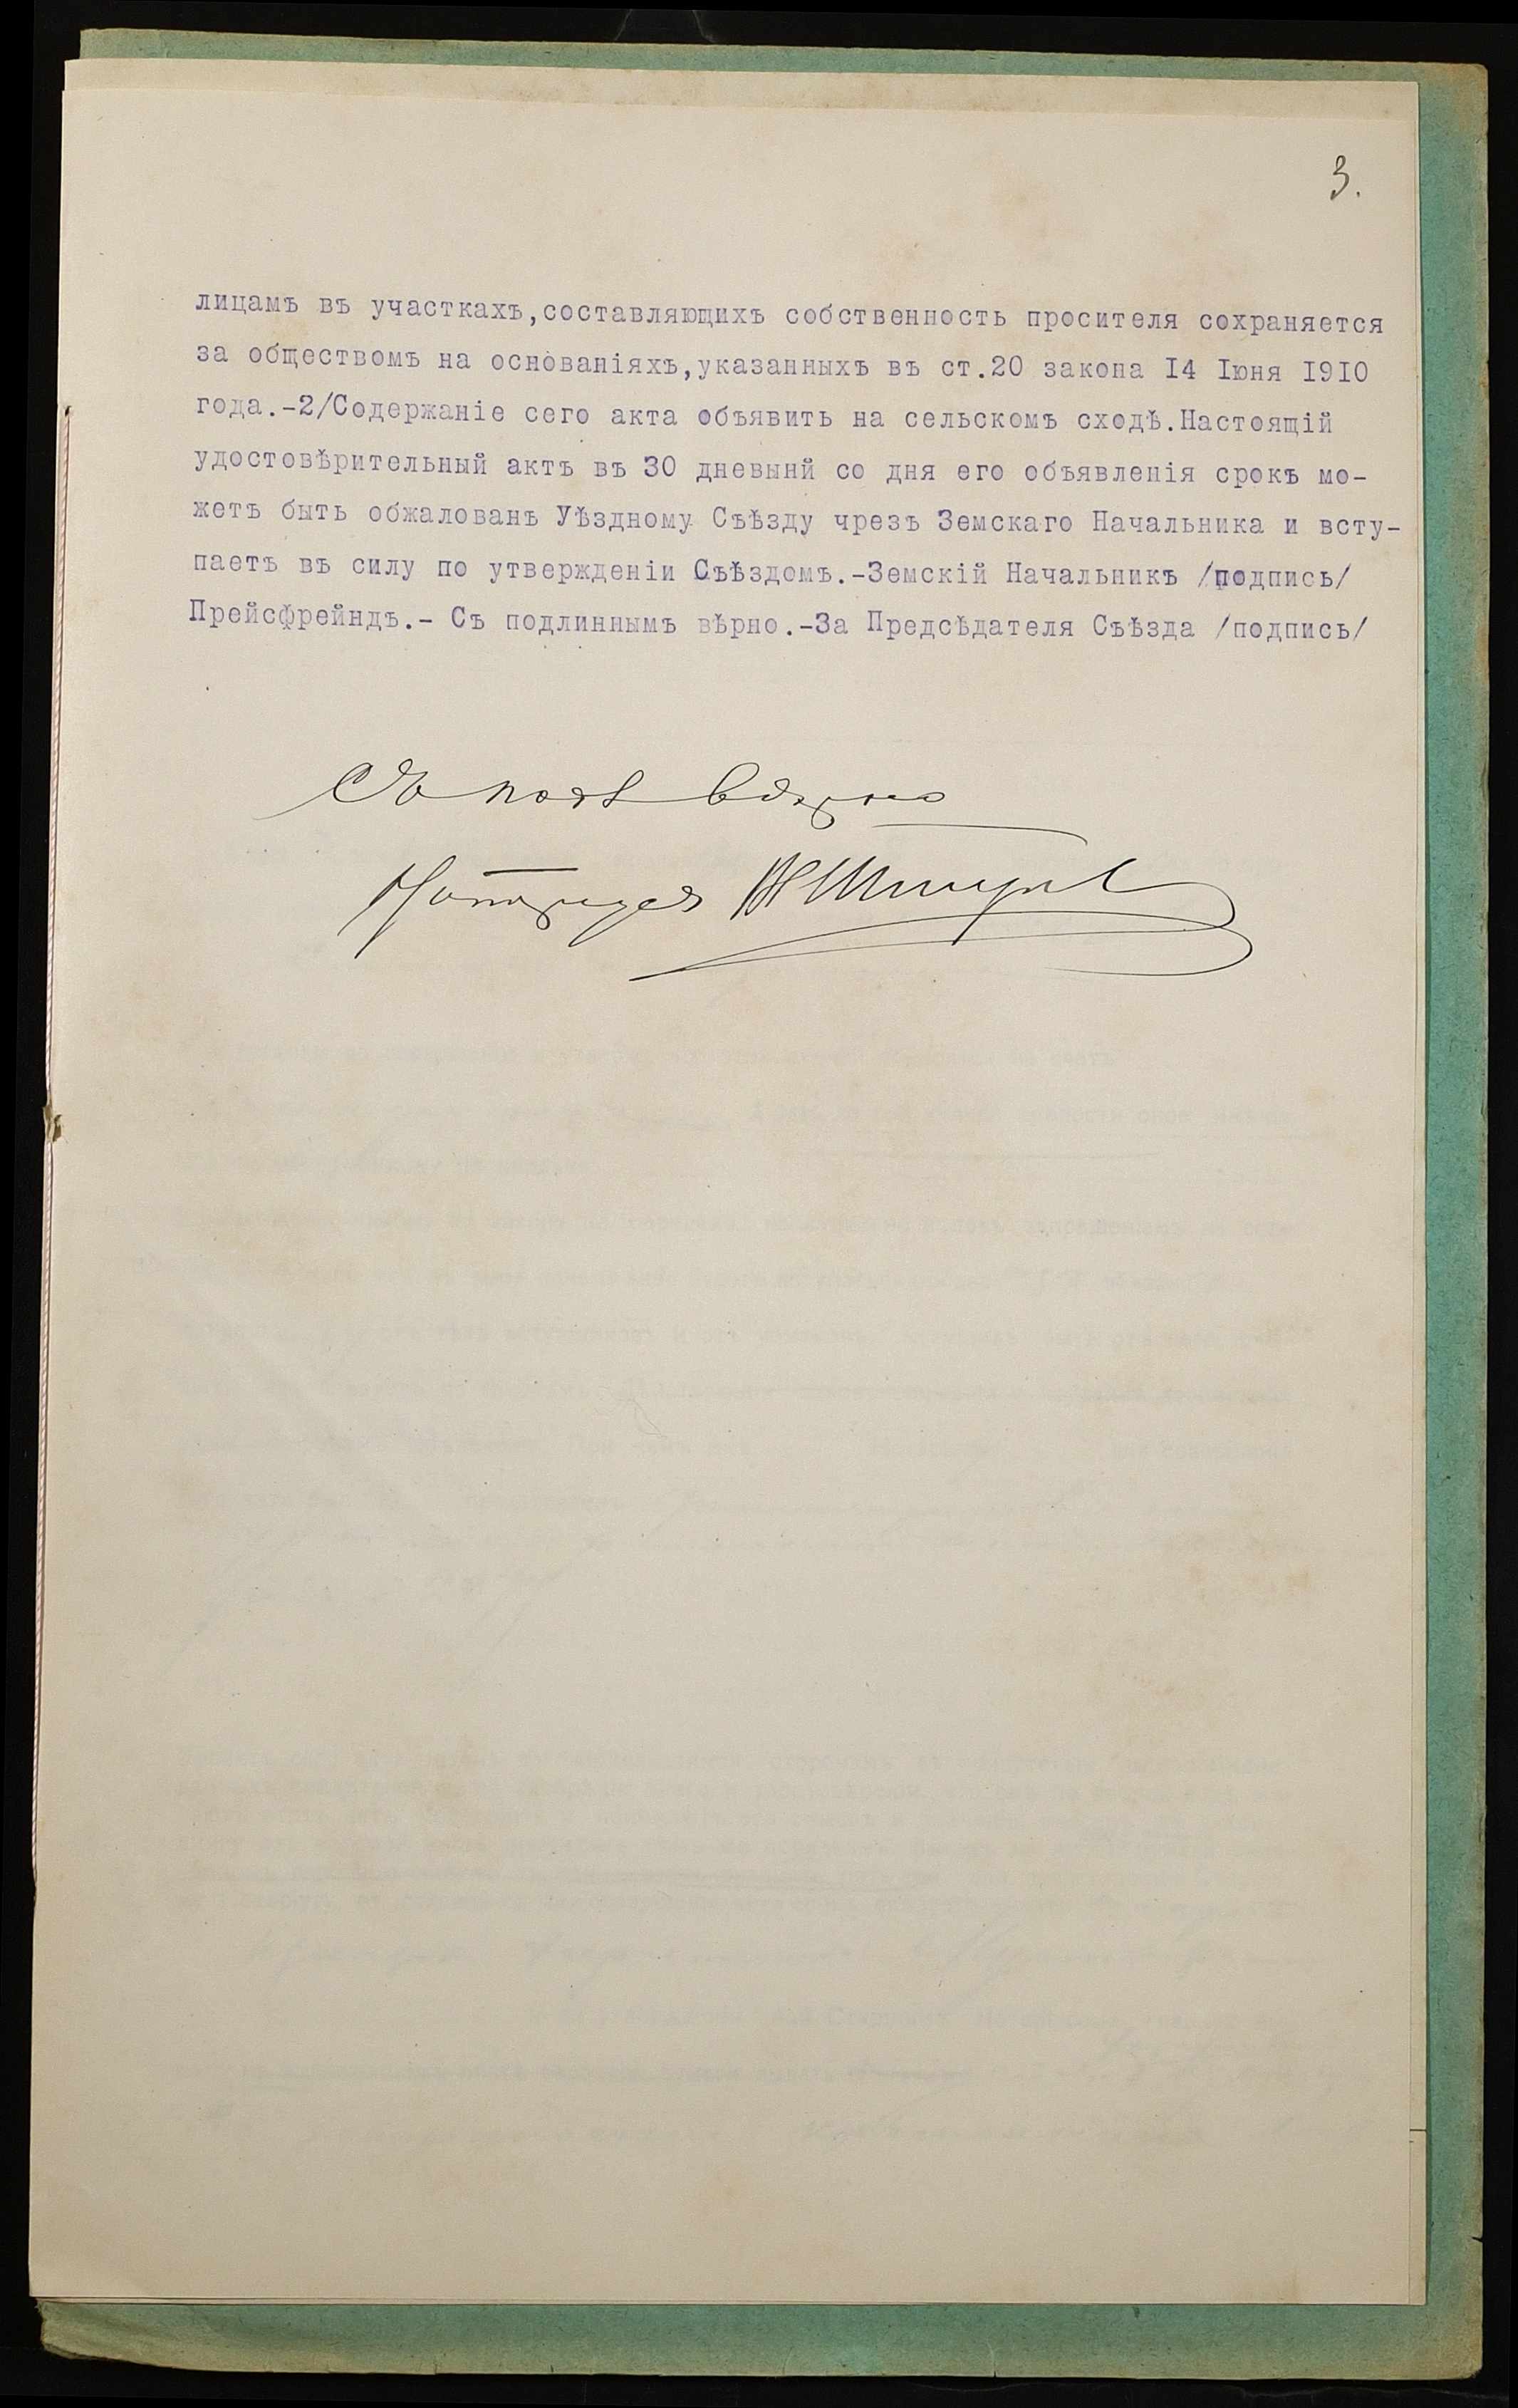 3.
лицамъ въ участкахъ,составляющихъ собственность просителя сохраняется
за обществомъ на основаніяхъ,указанныхъ въ ст.20 закона I4 Iюня I9I0
года.-2/Содержаніе сего акта объявить на сельскомъ сходѣ.Настоящій
удостовѣрительный актъ въ 30 дневынй со дня его объявленія срокъ мо-
жетъ быть обжалованъ Уѣздному Съѣзду чрезъ Земскаго Начальника и всту-
паетъ въ силу по утвержденіи Съѣздомъ.-Земскій Начальникъ /подпись/
Прейсфрейндъ.- Съ подлиннымъ вѣрно.-За Предсѣдателя Съѣзда /подпись/
Съ подл вѣрно